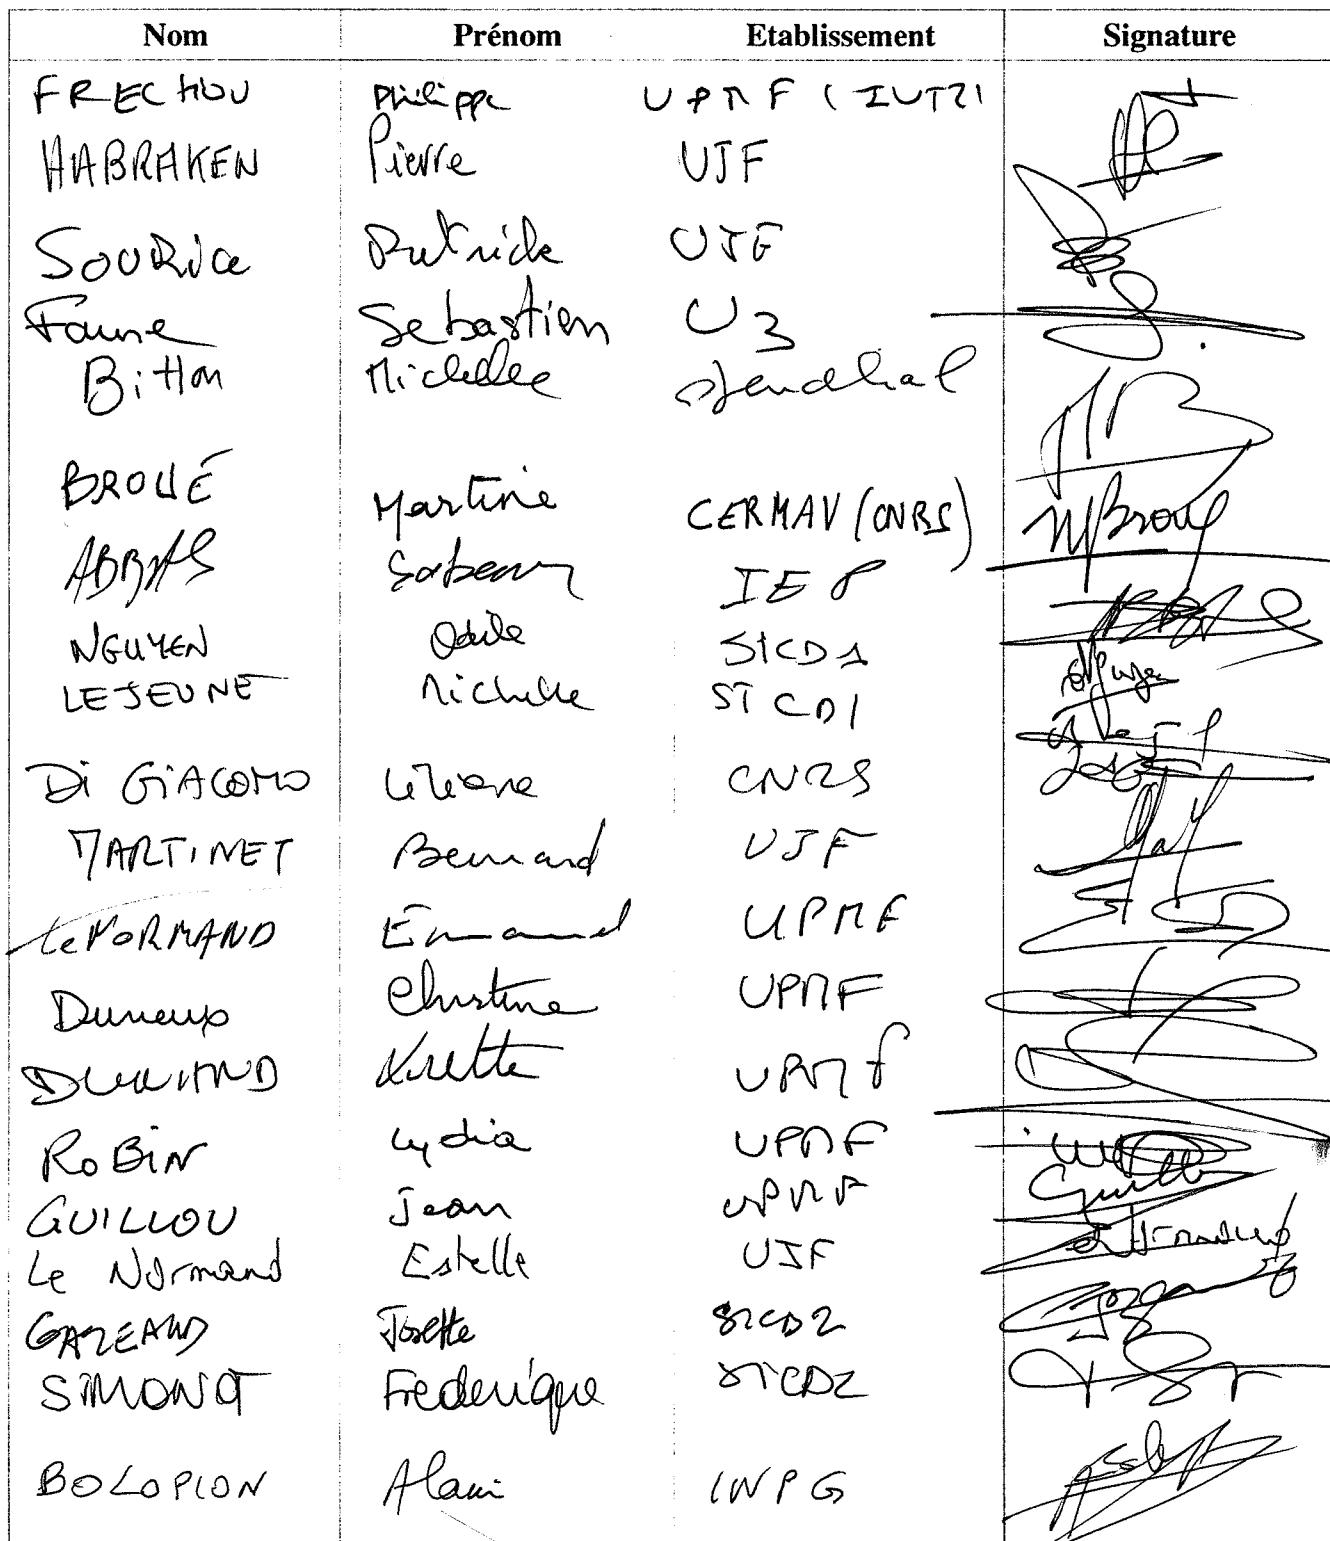 Nom Prénom Etablissement Signature
FRECHOU Philippe UPMF (IUT2)
HABRAKEN Pierre UJF
SOURice Patrick UJF
Faure Sebastien U3
Bitton Michelle Stendhal
BROUÉ Martine CERMAV (CNRS) MBroué
ABBAS IEP
NGUYEN Odile SICD1
LEJEUNE Michelle SICD1
Di GiACOMO Liliane CNRS
MARTINET Bernard UJF
Le NORMAND UPMF
Christine UPMF
DURAND UPMf
RoBiN Lydia UPMF
GUILLOU Jean UPMF Guillou
Le Normand Estelle UJF
Josette SICD2
SIMONOT Frederique SICD2
BOLOPION Alain INPG